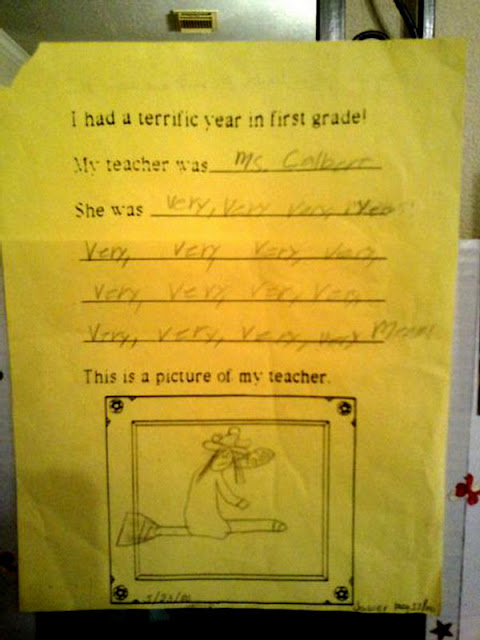 I had a terrific year in first grade!
My teacher was Ms. Calbert
She was very, very very,
very, very very, very,
very, very, ver, very
very, very, very, very Mean!
This is a picture of my teacher.
5/23/00